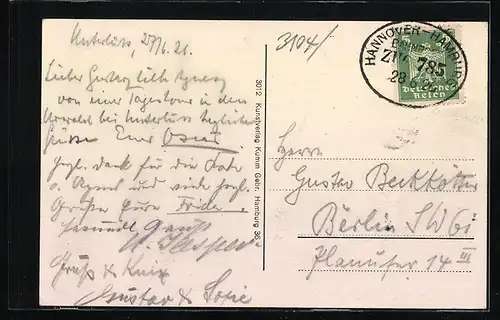 Unterlüss, 27/6. 26.
Lieber Gustav, liebe Agnes,
von einer Tagestour in den
Urwald bei Unterlüss herzliche
Grüsse Euer Oscar
Hzgl. Dank für die Karte
v. Agnes und viele hzgl.
Grüße Eure Frida.
Gruß & Kuss
Gustav & Sofie
3012 Kunstverlag Kumm Gebr. Hamburg 36
3104/
HANNOVER-HAMBURG
785
28.6.
Deutsches
Reich
Herrn
Gustav Beckkötter
Berlin SW 61
Planufer 14 III